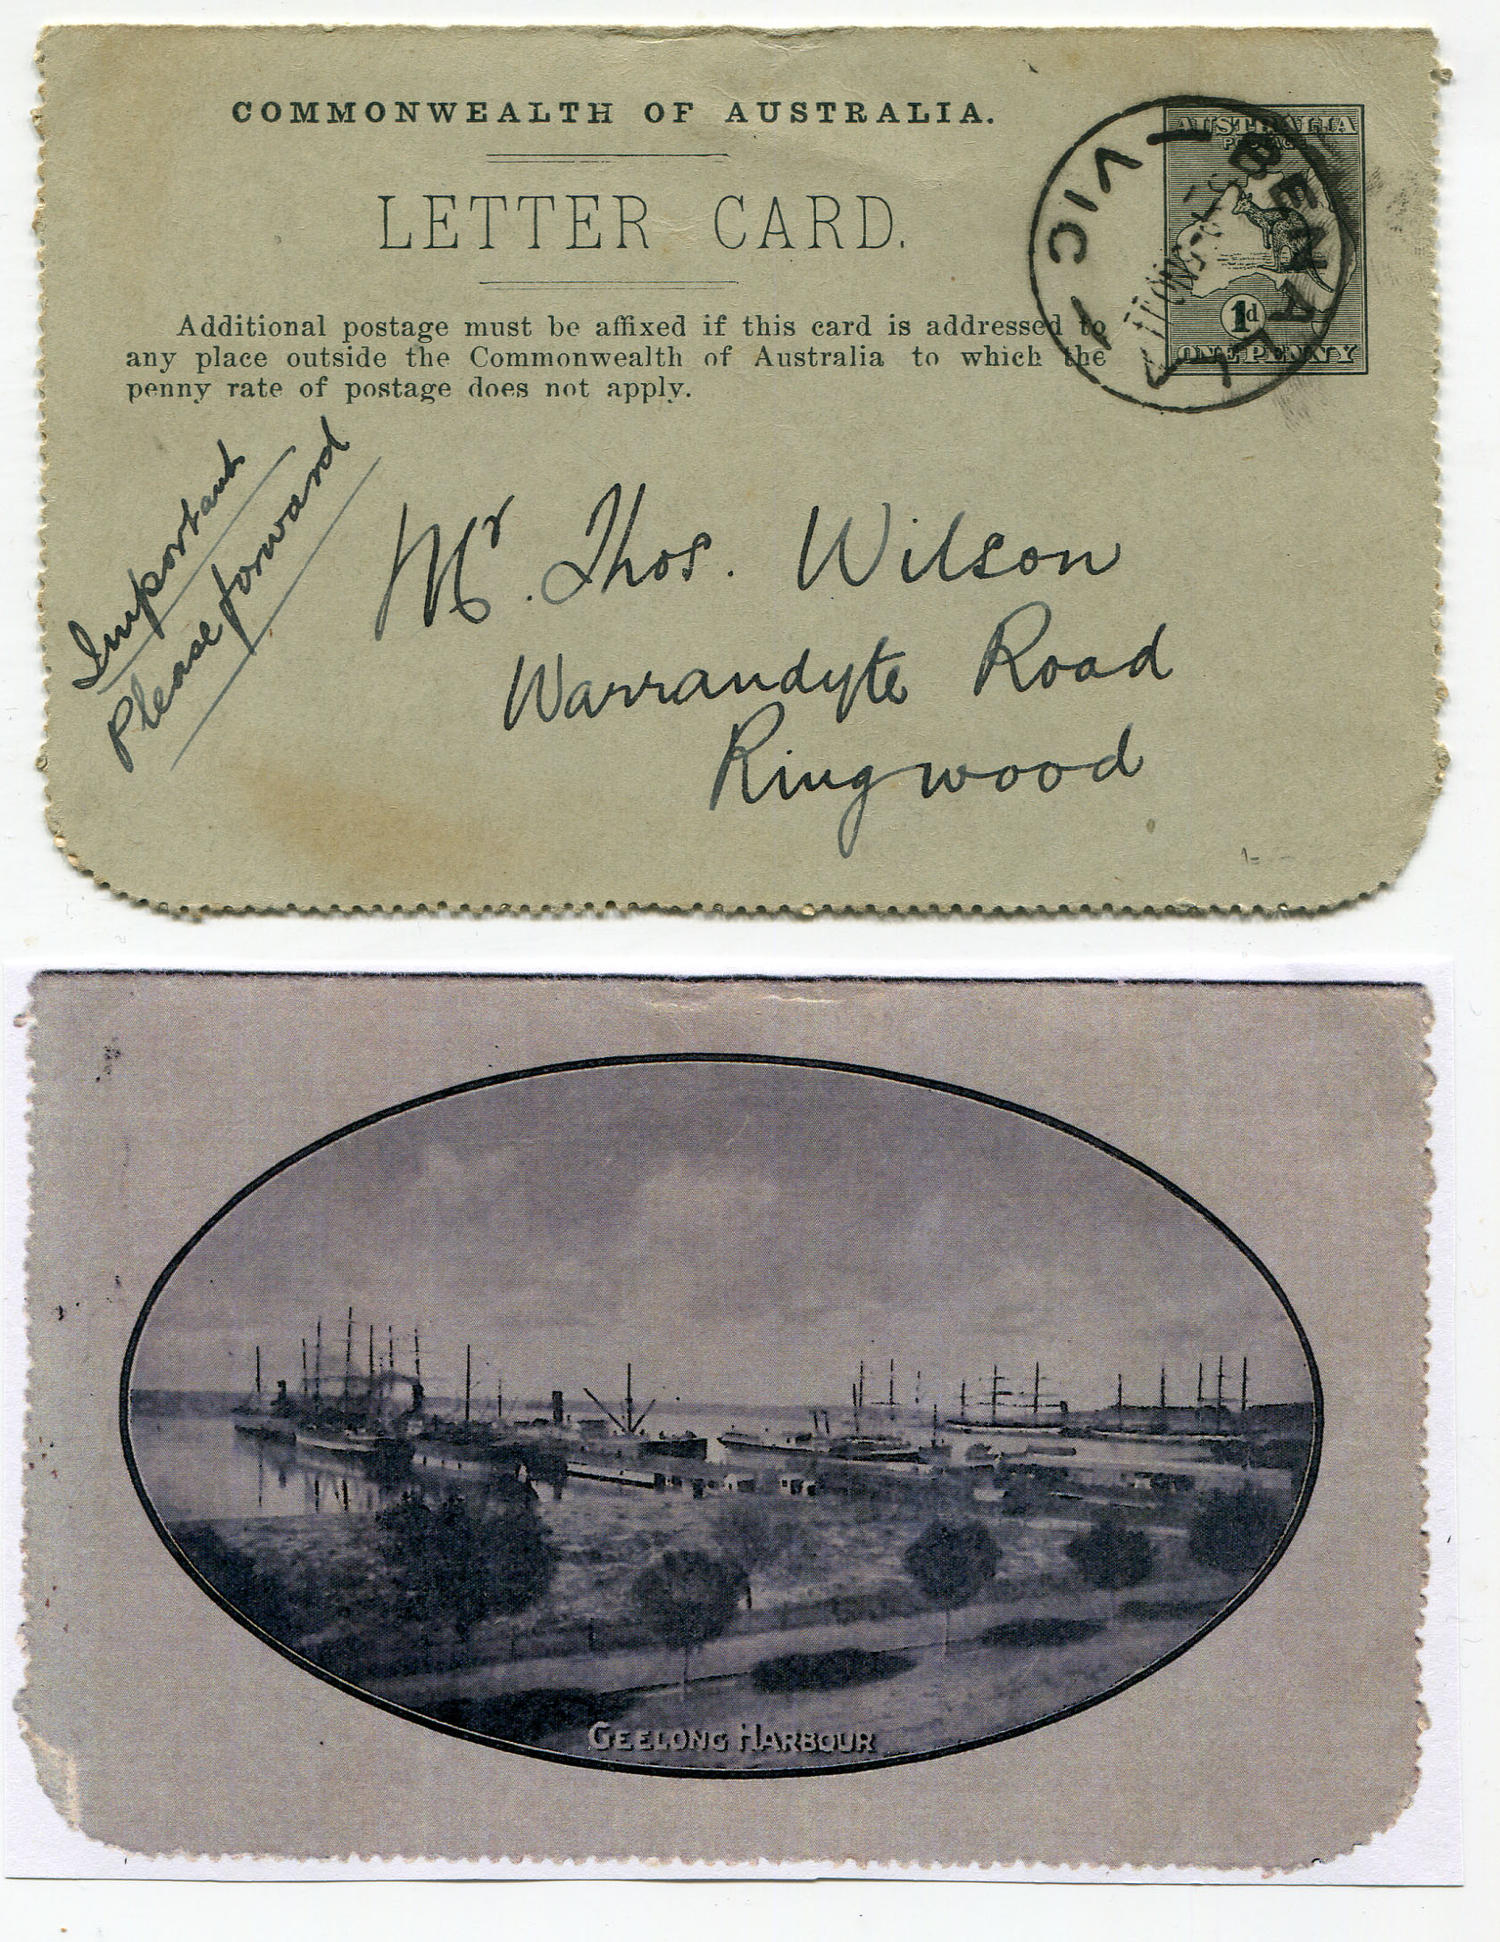 COMMONWEALTH OF AUSTRALIA.
LETTER CARD.
Additional postage must be affixed if this card is addressed to
any place outside the Commonwealth of Australia to which the
penny rate of postage does not apply.
AUSTRALIA
POSTAGE
1d
ONE PENNY
BENALLA
VIC
Important
Please forward
Mr. Thos. Wilson
Warrandyte Road
Ringwood
GEELONG HARBOUR